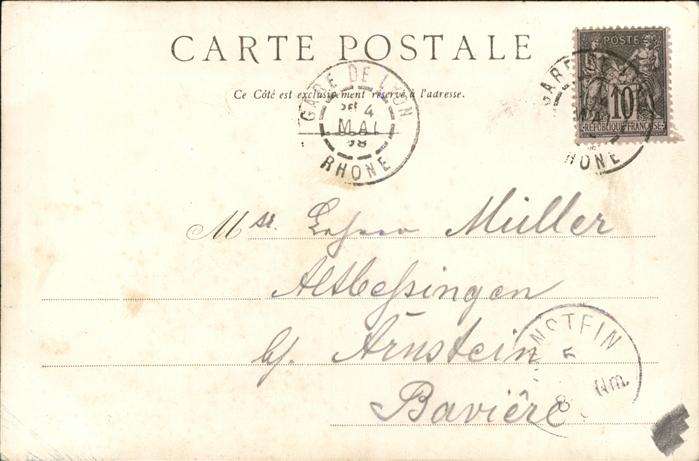 CARTE POSTALE
Ce Côté est exclusivement réservé à l'adresse.
GARE DE LYON
4
MAI
98
RHONE
POSTES
10
REPUBLIQUE FRANÇAISE
GARE
RHONE
Mr. Lehrer Müller
Altbeßingen
b/. Arnstein
Bavière
RNSTEIN
5
Nm.
8